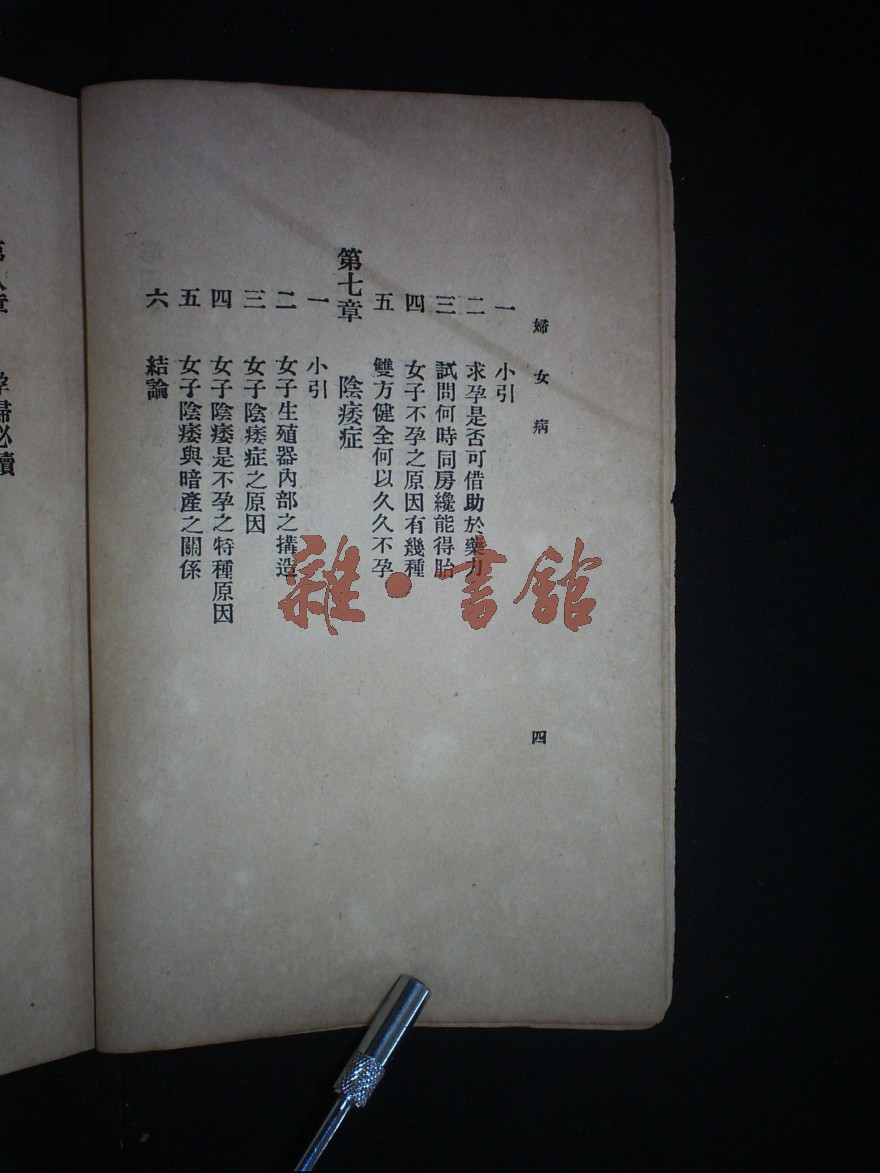 婦女病
四
一 小引
二 求孕是否可借助於藥力
三 試問何時同房纔能得胎
四 女子不孕之原因有幾種
五 雙方健全何以久久不孕
第七章 陰痿症
一 小引
二 女子生殖器內部之搆造
三 女子陰痿症之原因
四 女子陰痿是不孕之特種原因
五 女子陰痿與暗產之關係
六 結論
孕婦必讀
雜·書館